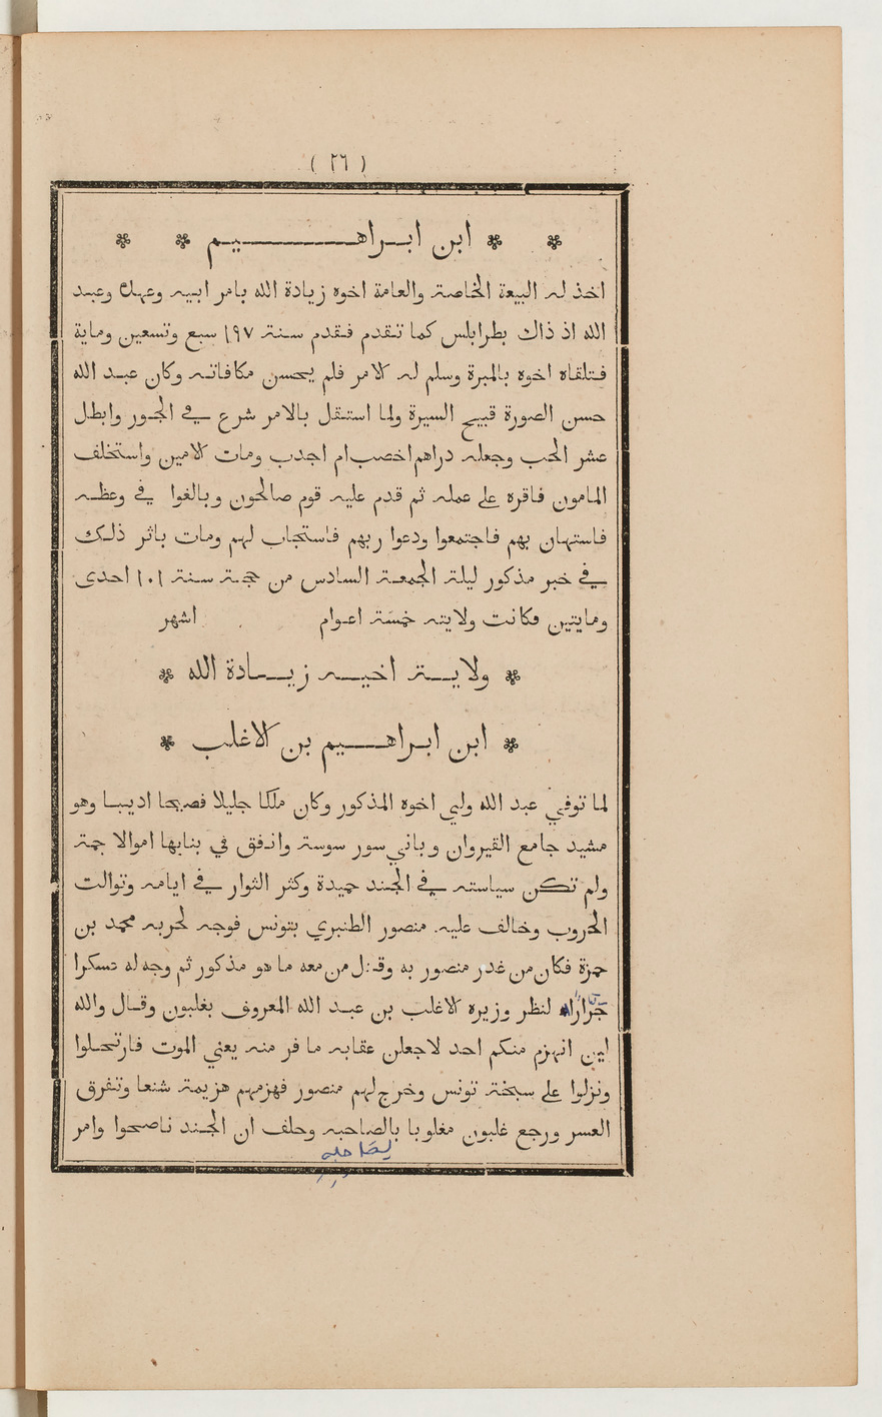 ( ٢٦ )
* * ابن ابـراهـــــيم * *
اخذ له البيعة الخاصة والعامة اخوه زيادة الله بامر ابيه وعهده وعبد
الله اذ ذاك بطرابلس كما تقدم فقدم سنة ١٩٧ سبع وتسعين وماية
فتلقاه اخوه بالمبرة وسلم له الامر فلم يحسن مكافاته وكان عبد الله
حسن الصورة قبيح السيرة ولما استقل بالامر شرع في الجور وابطل
عشر الحب وجعله دراهم اخصب ام اجدب ومات الامين واستخلف
المامون فاقره على عمله ثم قدم عليه قوم صالحون وبالغوا في وعظه
فاستهان بهم فاجتمعوا ودعوا ربهم فاستجاب لهم ومات باثر ذلك
في خبر مذكور ليلة الجمعة السادس من حجة سنة ١٠١ احدى
ومايتين فكانت ولايته خمسة اعوام اشهر
* ولايـة اخيـه زيـادة الله *
* ابن ابـراهـيم بن الاغلب *
لما توفي عبد الله ولي اخوه المذكور وكان ملكا جليلا فصيحا اديبا وهو
مشيد جامع القيروان وباني سور سوسة وانفق في بنايها اموالا جمة
ولم تكن سياسته في الجند حميدة وكثر الثوار في ايامه وتوالت
الحروب وخالف عليه منصور الطنبري بتونس فوجه لحربه محمد بن
حمزة فكان من غدر منصور به وقتل من معه ما هو مذكور ثم وجه له عسكرا
جرارا لنظر وزيره الاغلب بن عبد الله المعروف بغلبون وقال والله
لين انهزم منكم احد لاجعلن عقابه ما فر منه يعني الموت فارتحلوا
ونزلوا على سبخة تونس وخرج لهم منصور فهزمهم هزيمة شنعا وتفرق
العسر ورجع غلبون مغلوبا بالصاحبه وحلف ان الجند ناصحوا وامر
لصاحبه